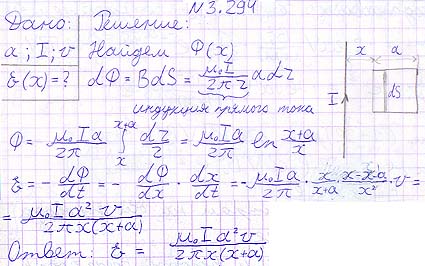 №3.294
Дано: Решение:
a; I; v Найдем Ф(x)
ℰ(x)=? dФ = BdS = μ₀I/2πr adr
индукция прямого тока
x a
I dS
Ф = μ₀Ia/2π ∫ₓˣ⁺ᵃ dr/r = μ₀Ia/2π ln x+a/x
ℰ = - dФ/dt = - dФ/dx · dx/dt = - μ₀Ia/2π · x/x+a · x-x-a/x² · v =
= μ₀Ia²v/2πx(x+a)
Ответ: ℰ = μ₀Ia²v/2πx(x+a)